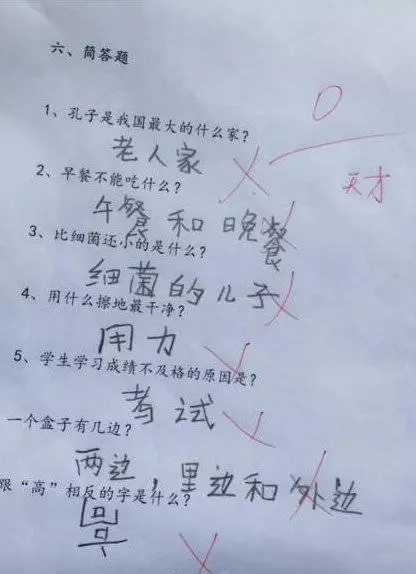 六、简答题
1、孔子是我国最大的什么家?
老人家
0
天才
2、早餐不能吃什么?
午餐和晚餐
3、比细菌还小的是什么?
细菌的儿子
4、用什么擦地最干净?
用力
5、学生学习成绩不及格的原因是?
考试
一个盒子有几边?
两边,里边和外边
跟“高”相反的字是什么?